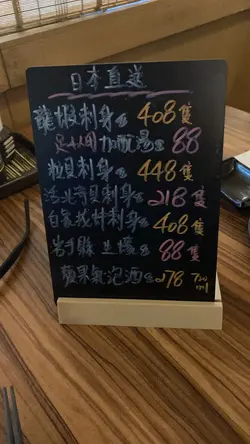 日本直送
龍蝦刺身 408 隻
加購湯 88
粒貝刺身 448 隻
活北寄貝刺身 218 隻
自家 刺身 408 隻
岩手縣 生蠔 88 隻
蘋果氣泡酒 278 720 ml